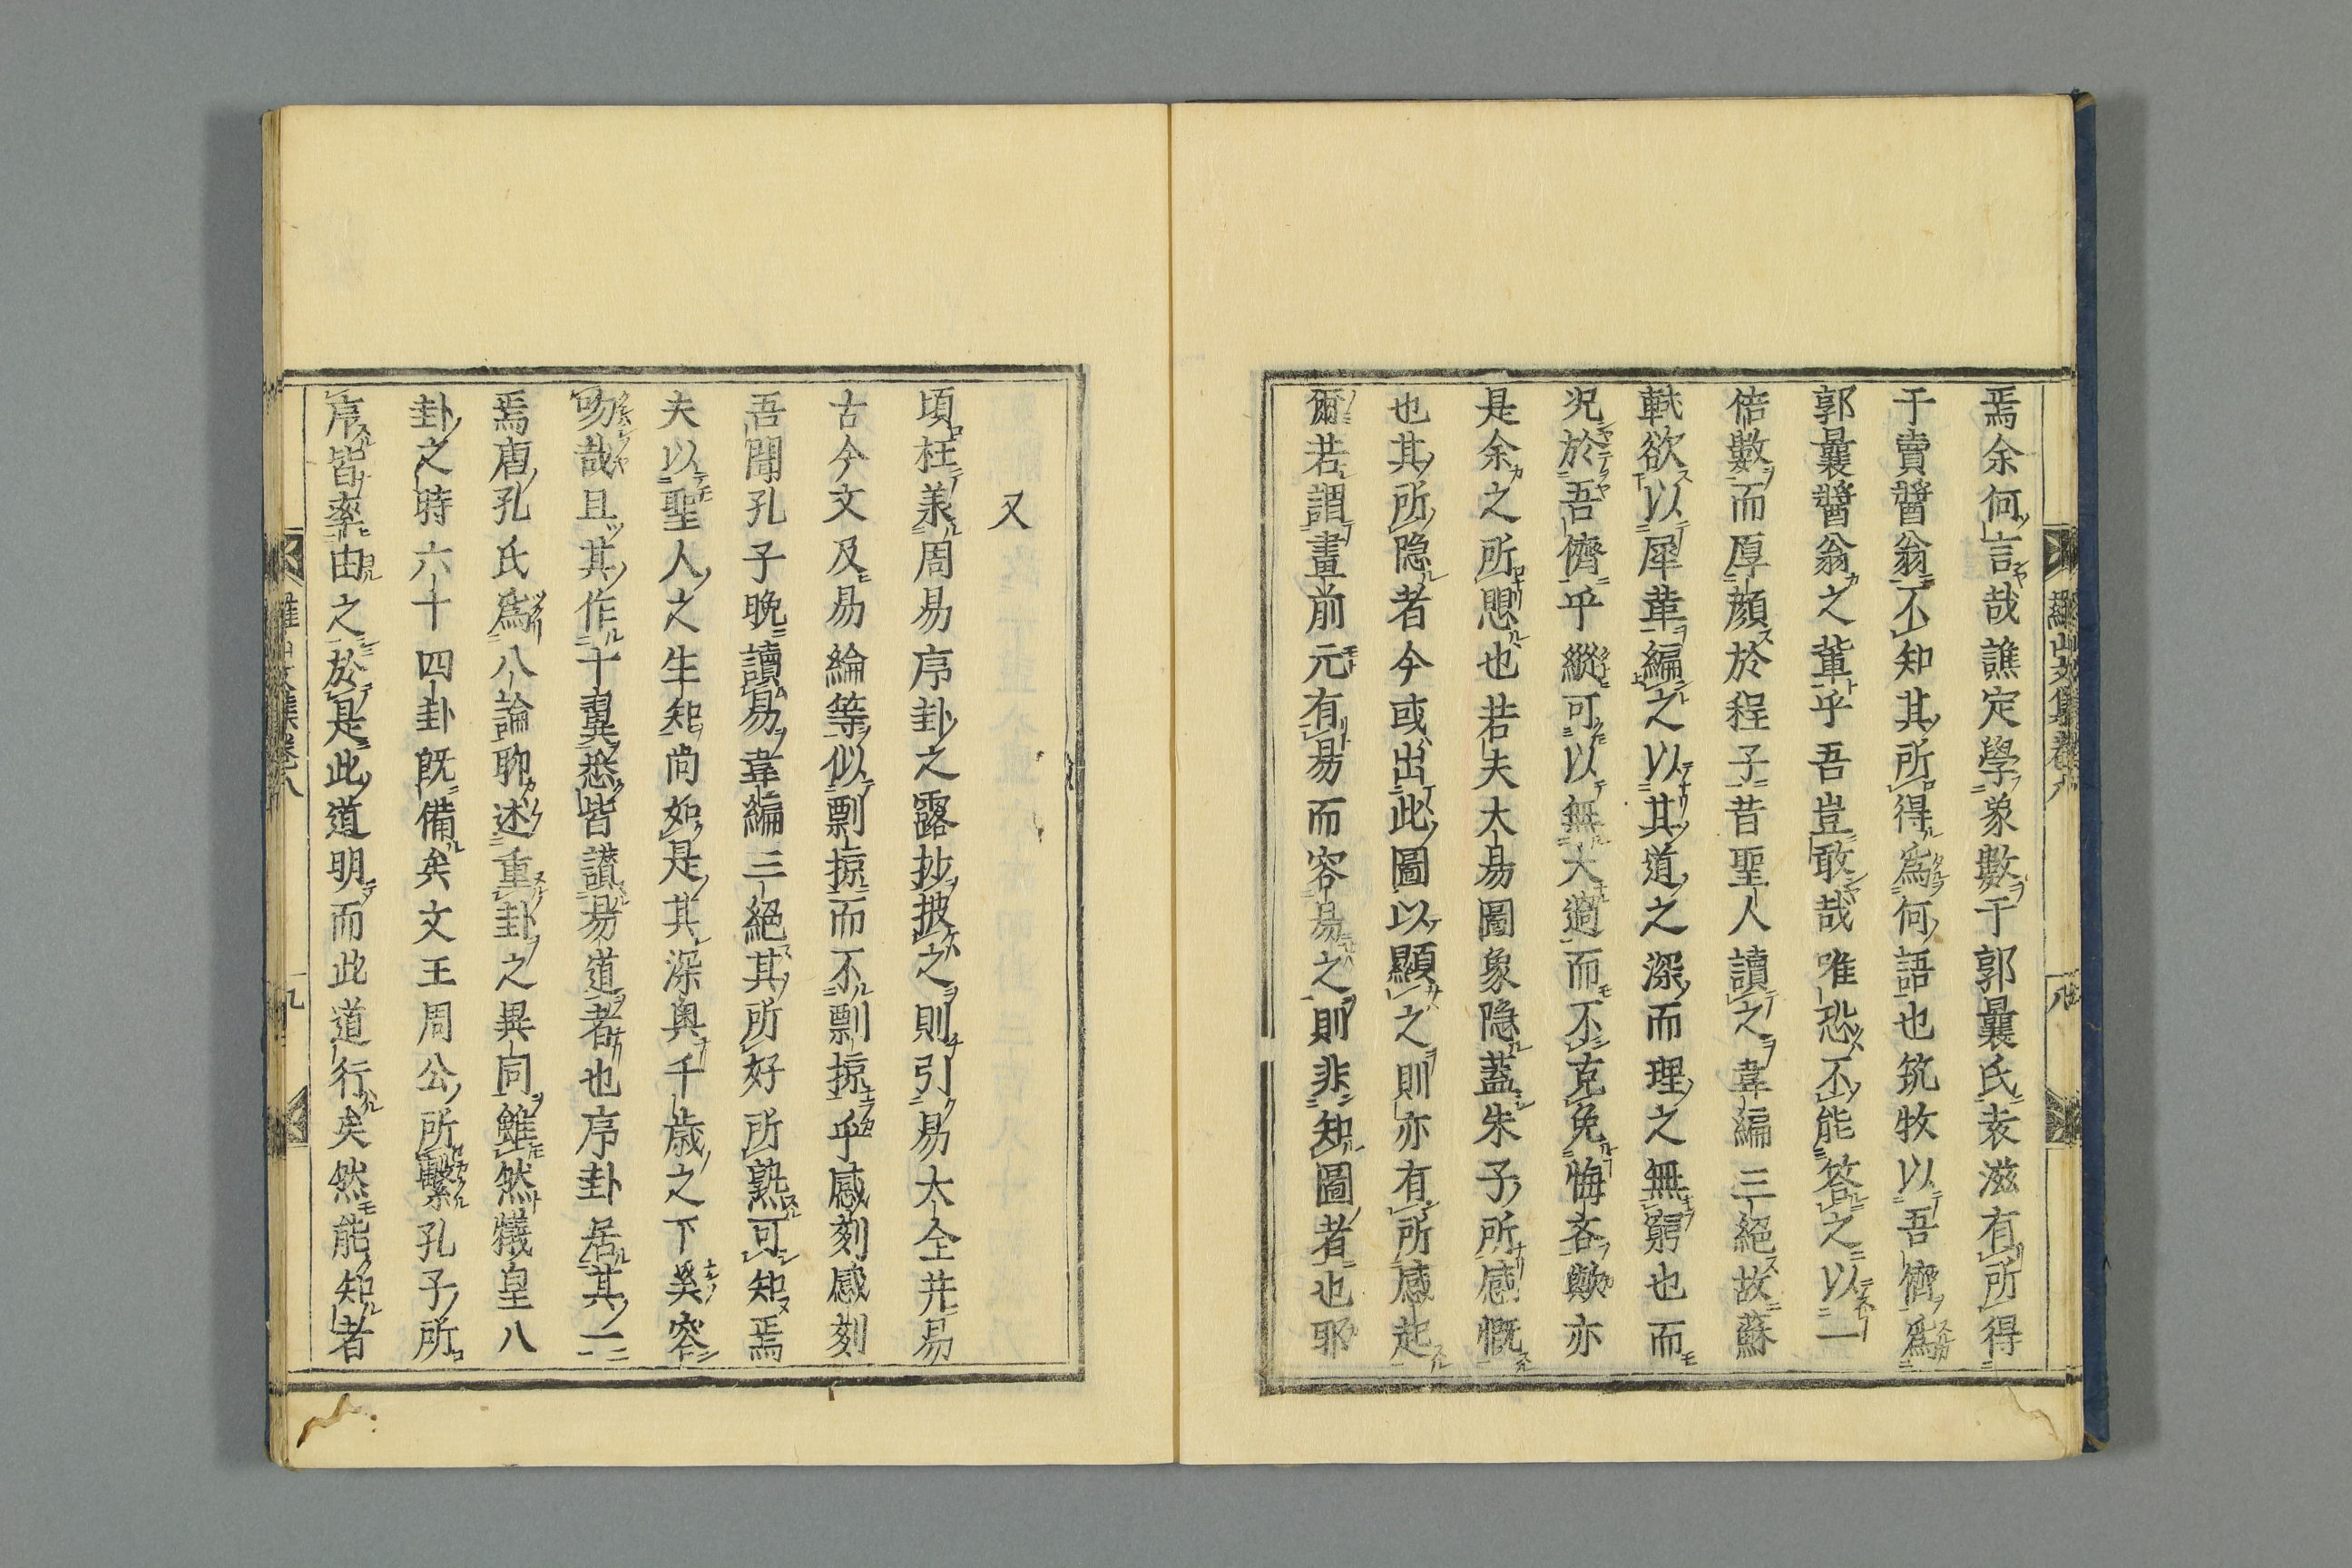 焉余何言哉譙定學象數于郭曩氏袁滋有所得
于賣醬翁不知其所得爲何語也筑牧以吾儕爲
郭曩醬翁之輩乎吾豈敢哉唯恐不能答之以一
倍數而厚顔於程子昔聖人讀之韋編三絕故蘇
軾欲以犀革編之以其道之深而理之無窮也而
况於吾儕乎縱可以無大過而不克免悔吝歟亦
是余之所愳也若夫大易圖象隐蓋朱子所感慨
也其所隐者今或出此圖以顯之則亦有所感起
爾若謂畫前元有易而容易之則非知圖者也耶
又
頃枉羕周易序卦之露抄披之則引易大全并易
古今文及易綸等似剽掠而不剽掠乎感刻感刻
吾聞孔子晚讀易韋編三絕其所好所熟可知焉
夫以聖人之生知尚如是其深奥千歳之下奚容
吻哉且其作十翼悉皆讃易道者也序卦居其一
焉唐孔氏爲八論聊述重卦之異同雖然犧皇八
卦之時六十四卦既備矣文王周公所繫孔子所
序皆率由之於是此道明而此道行矣然能知者
羅山文集卷八
八
九